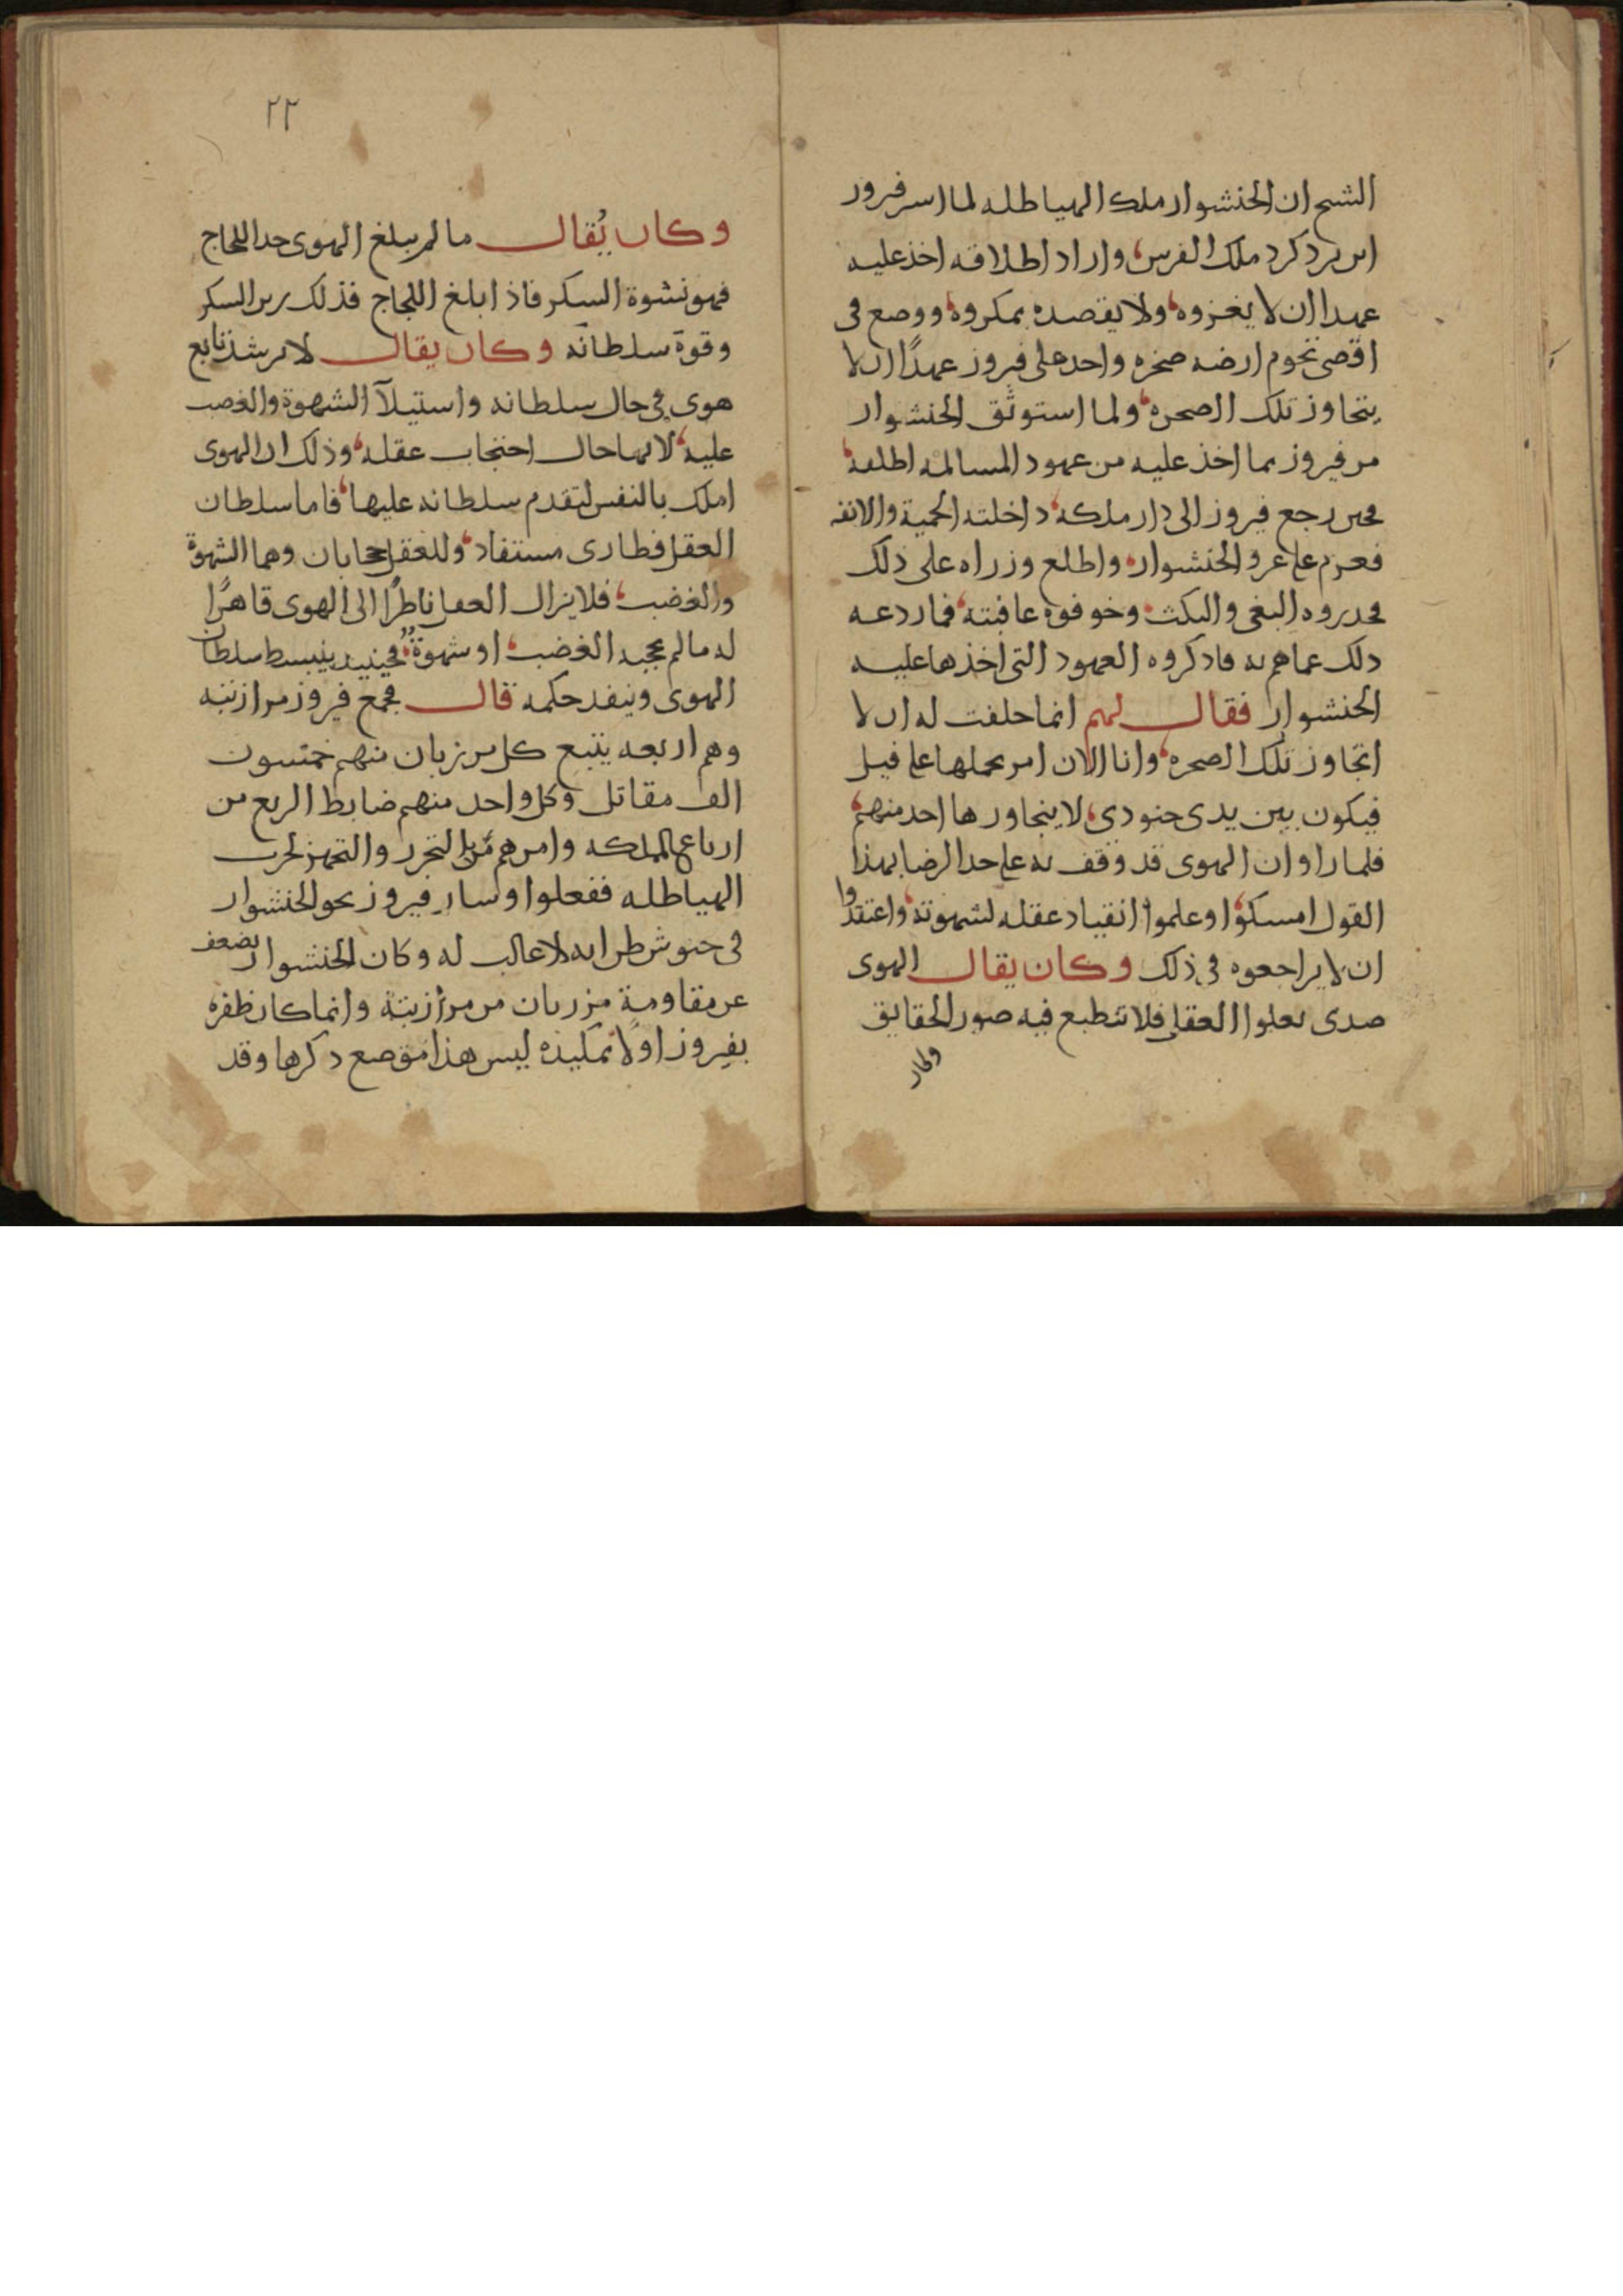 الشيخ ان الخنشوار ملك الهياطله لما اسر فيروز
ابن يزدكرد ملك الفرس واراد اطلاقه اخذ عليه
عهدا ان لا يغزوه ولا يقصده بمكروه ووضع في
اقصى تخوم ارضه صخره واخذ على فيروز عهدًا ان لا
يتجاوز تلك الصخره ولما استوثق الخنشوار
من فيروز بما اخذ عليه من عهود المسالمه اطلقه
فحين رجع فيروز الى دار ملكه داخلته الحمية والانفه
فعزم على غزو الخنشوار واطلع وزراه على ذلك
فحذروه البغي والنكث وخوفوه عاقبته فما ردعه
ذلك عما هم به فاذكروه العهود التي اخذها عليه
الخنشوار فقال لهم انما حلفت له ان لا
اتجاوز تلك الصخره وانا الان امر بحملها على فيل
فيكون بين يدي جنودي لا يتجاوزها احد منهم
فلما راوا ان الهوى قد وقف به على حد الرضا بهذا
القول امسكوا وعلموا انقياد عقله لشهوته واعتقدوا
ان لا يراجعوه في ذلك وكان يقال الهوى
صدى يعلوا العقل فلا تنطبع فيه صور الحقايق
وكان
٢٢
وكان يُقال ما لم يبلغ الهوى حد اللجاج
فهو نشوة السكر فاذا بلغ اللجاج فذلك رين السكر
وقوة سلطانه وكان يقال لا يرشد تابع
هوى في حال سلطانه واستيلآ الشهوة والغضب
عليه لانها حال احتجاب عقله وذلك ان الهوى
املك بالنفس لتقدم سلطانه عليها فاما سلطان
العقل فطارى مستفاد وللعقل حجابان وهما الشهوة
والغضب فلا يزال العقل ناظرًا الى الهوى قاهرًا
له ما لم يحجبه الغضب او شهوة فحينيذ ينبسط سلطان
الهوى وينفذ حكمه قال فجمع فيروز مرازبته
وهم اربعه يتبع كل مرزبان منهم خمسون
الف مقاتل وكل واحد منهم ضابط الربع من
ارباع المملكه وامرهم بالتجرد والتجهز لحرب
الهياطله ففعلوا وسار فيروز نحو الخنشوار
في جنوش ظن انه لا غالب له وكان الخنشوار يضعف
عن مقاومة مزربان من مرازبتة وانما كان ظفره
بفيروز اولًا بمكيده ليس هذا موضع ذكرها وقد